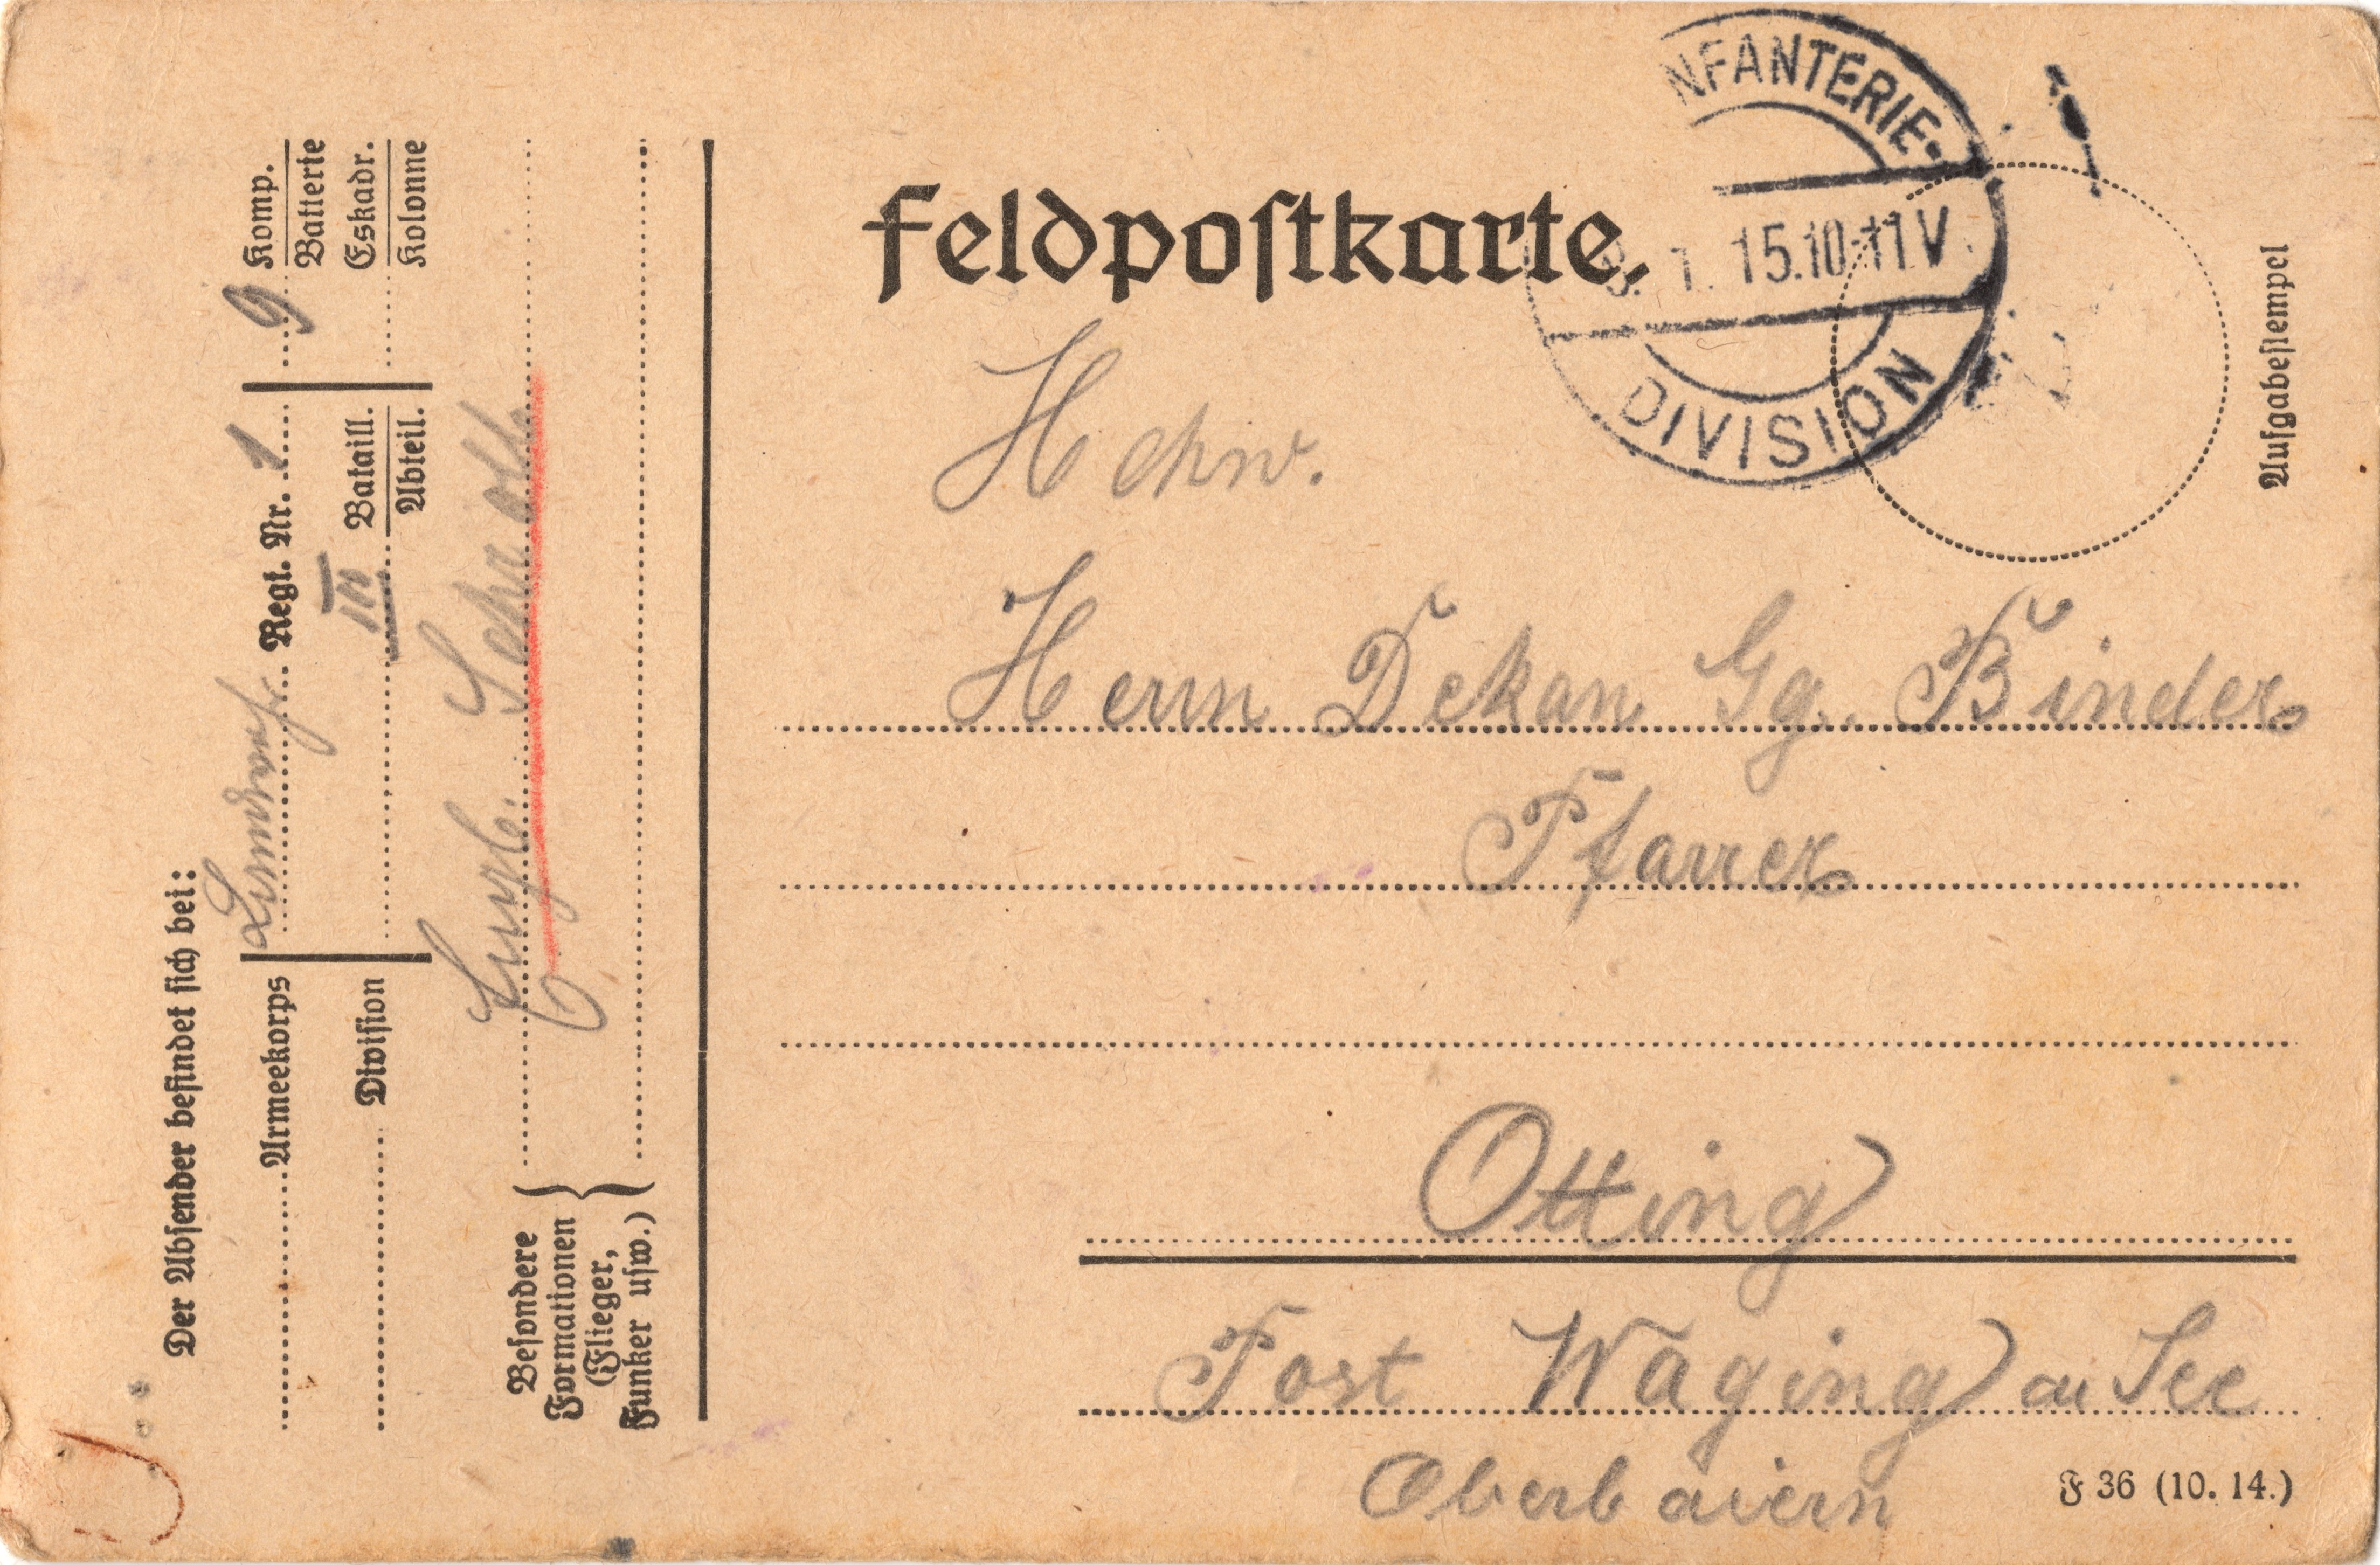 Der Absender befindet sich bei:
Armeekorps Landwehr Regt. Nr. 1 9 Komp.
Batterie
Division III Bataill. Eskadr.
Abteil. Kolonne
Besondere
Formationen
(Flieger,
Funker usw.)
Feldpostkarte.
NFANTERIE-
1. 15.10-11V
DIVISION
Aufgabestempel
Hchw.
Herrn Dekan Gg. Binder
Pfarrer
Otting
Post Waging am See
Oberbaiern
F 36 (10. 14.)